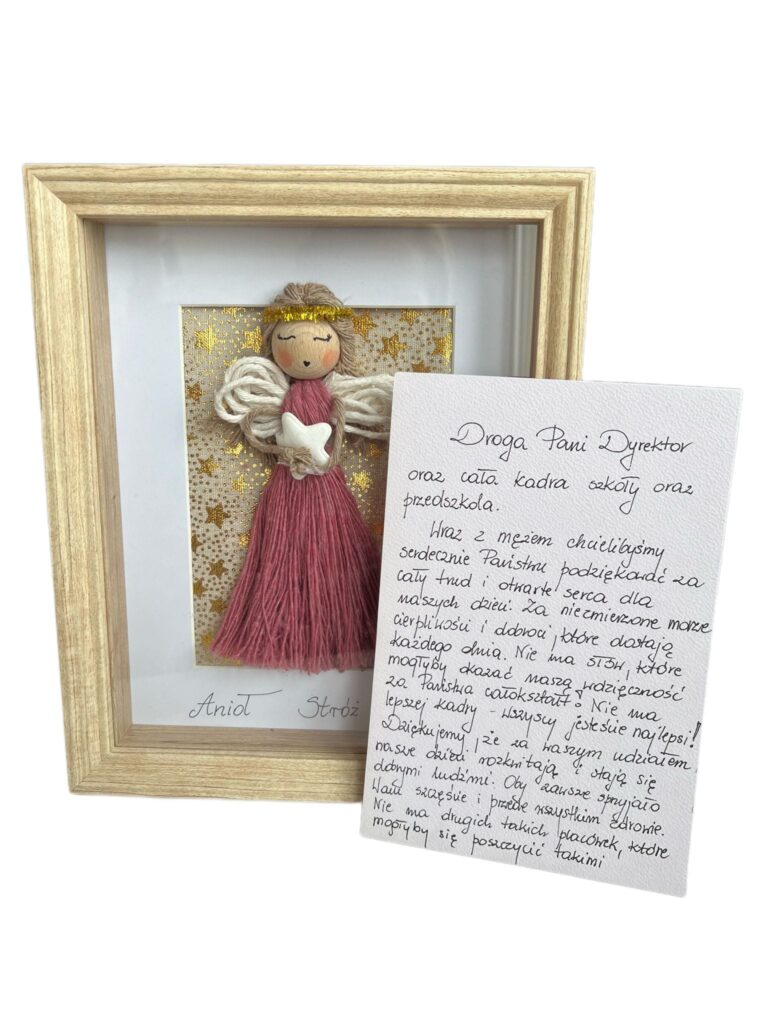 Anioł Stróż
Droga Pani Dyrektor
oraz cała kadra szkoły oraz
przedszkola.
Wraz z mężem chcielibyśmy
serdecznie Państwu podziękować za
cały trud i otwarte serca dla
naszych dzieci. Za niezmierzone morze
cierpliwości i dobroci, które dostają
każdego dnia. Nie ma słów, które
mogłyby okazać naszą wdzięczność
za Państwa całokształt! Nie ma
lepszej kadry - wszyscy jesteście najlepsi!
Dziękujemy, że za waszym udziałem
nasze dzieci rozkwitają i stają się
dobrymi ludźmi. Oby zawsze sprzyjało
Wam szczęście i przede wszystkim zdrowie.
Nie ma drugich takich placówek, które
mogłyby się poszczycić takimi